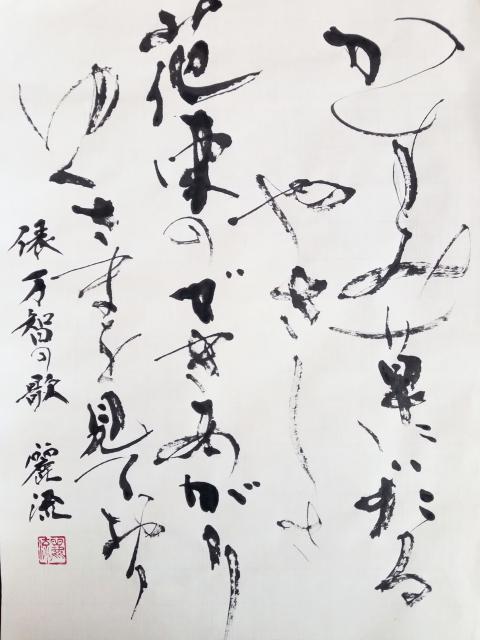 かすみ草に
やさしさ
花束のできあがり
ゆくさまを見ており
俵万智の歌 麗流